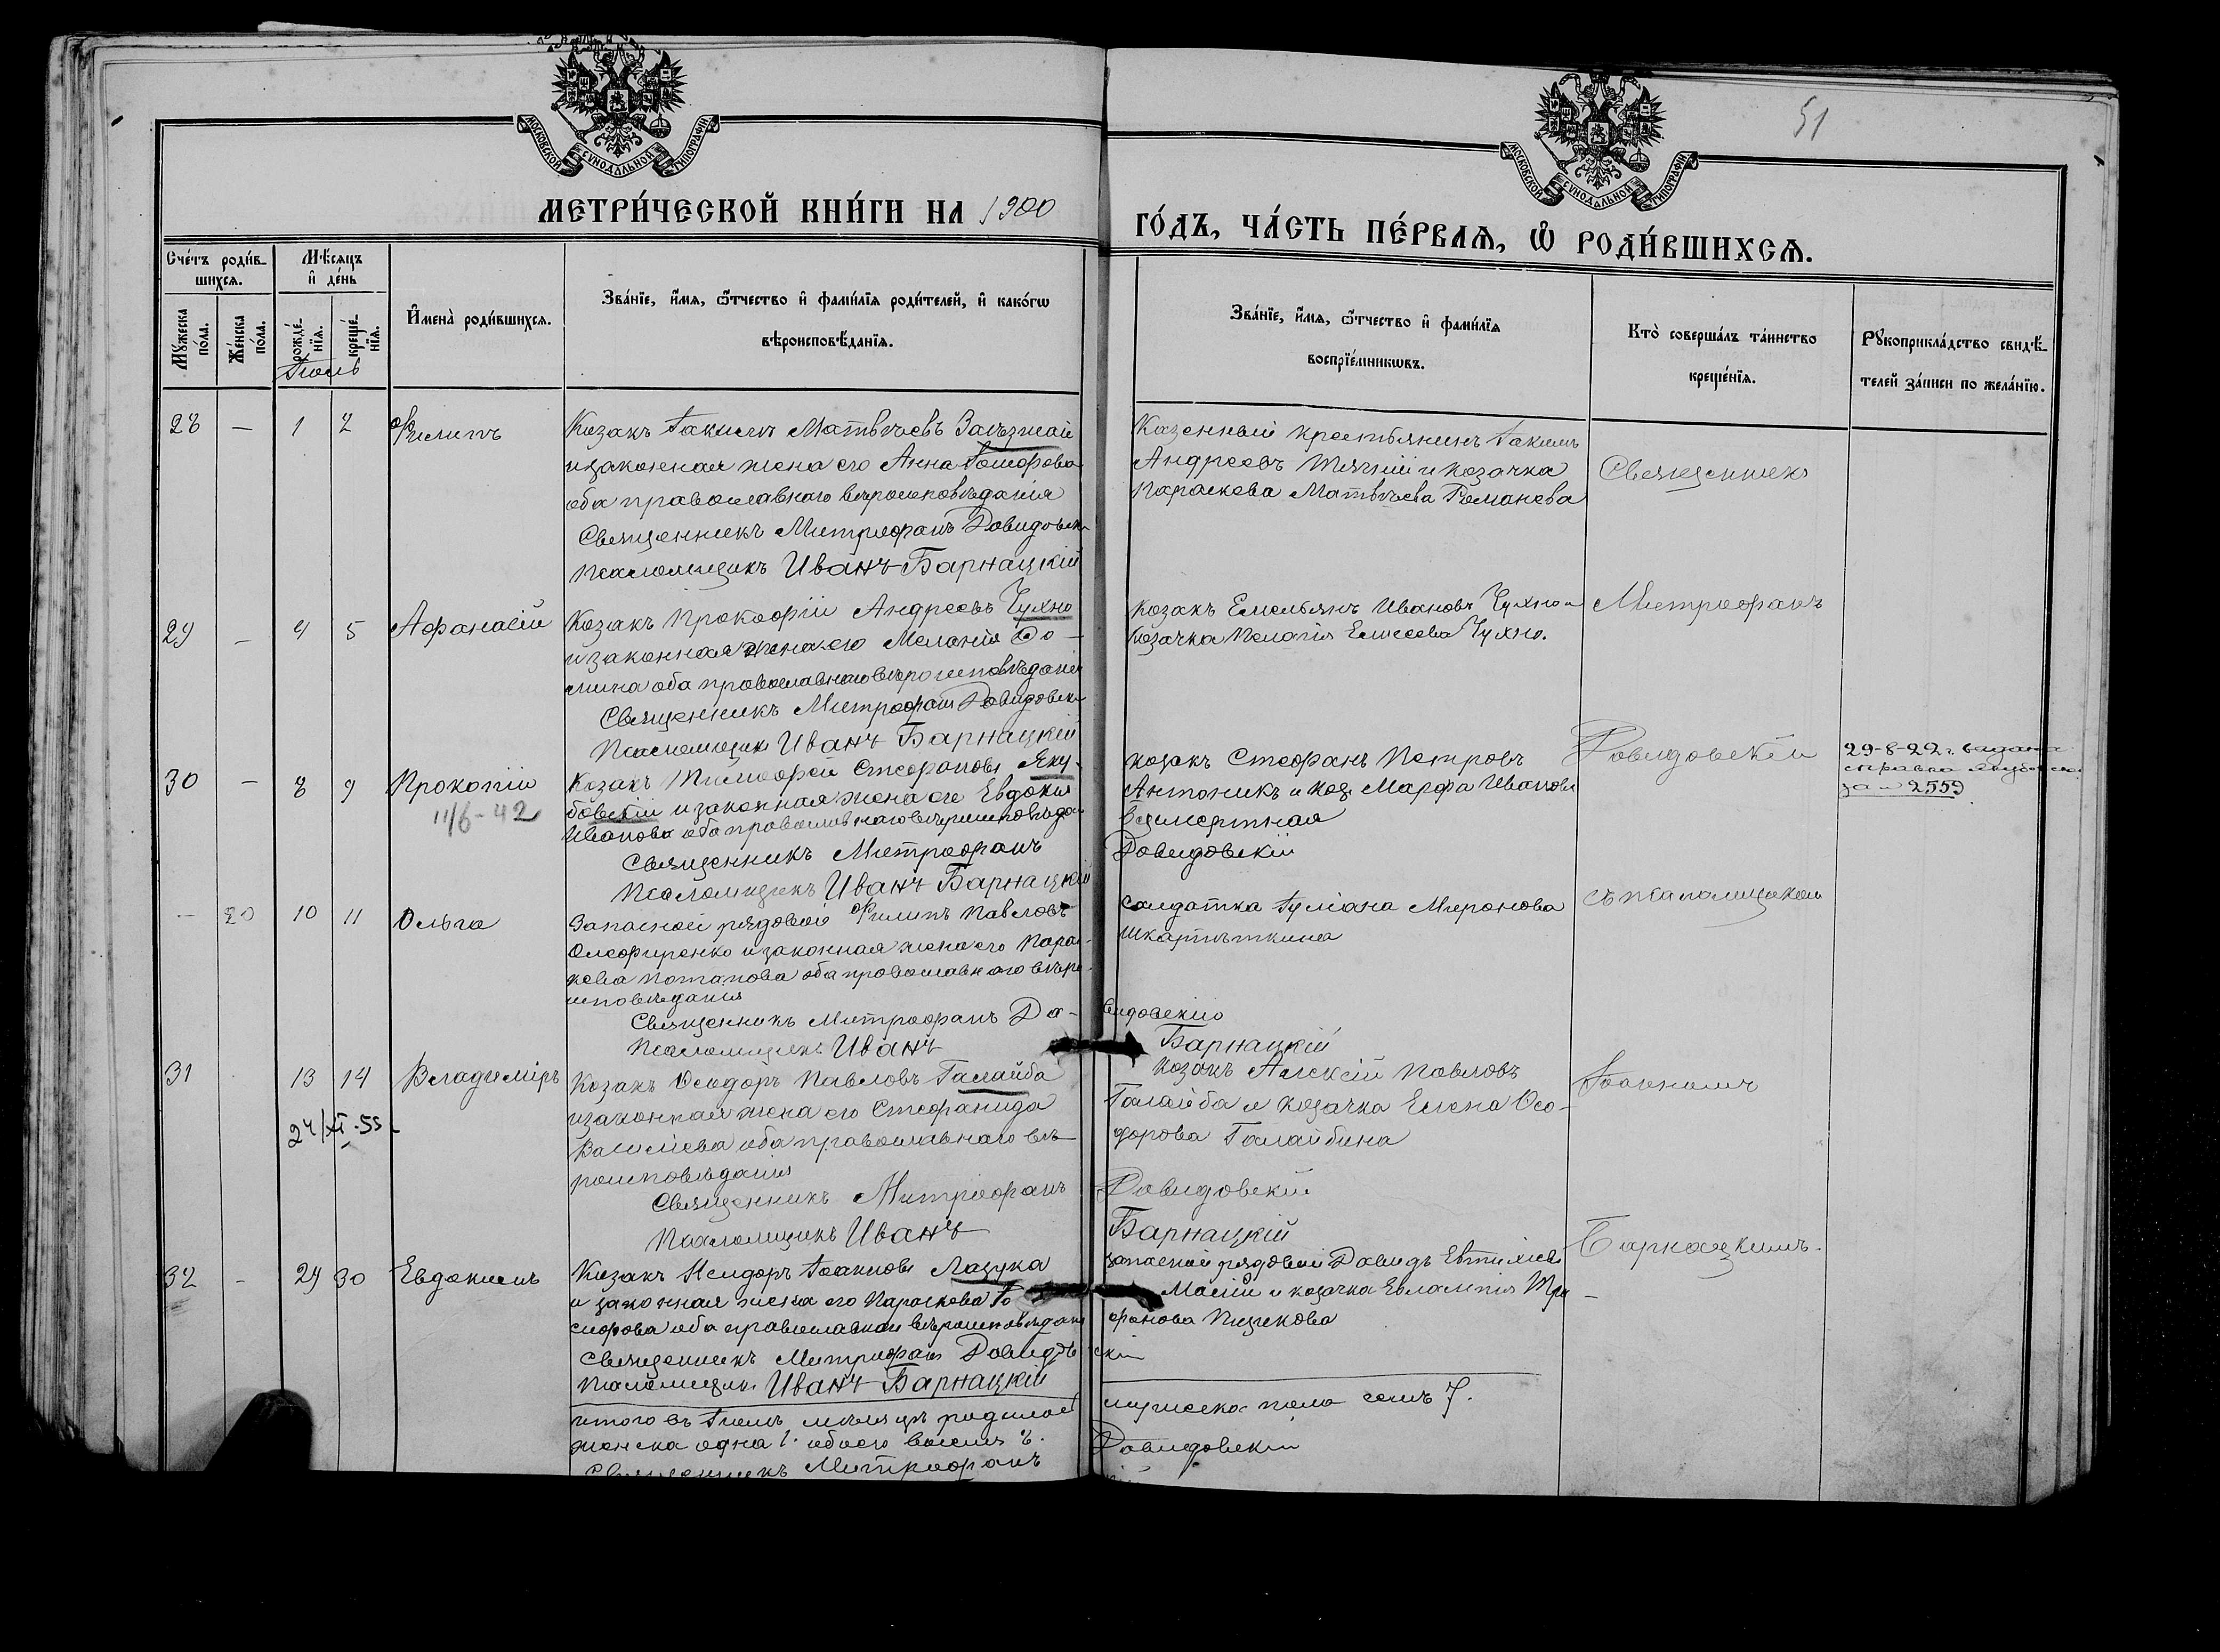 51
МОСКОВСКОЙ СУНОДАЛЬНОЙ ТИПОГРАФІИ
МОСКОВСКОЙ СУНОДАЛЬНОЙ ТИПОГРАФІИ
МЕТРИ́ЧЕСКОЙ КНИ́ГИ НА 1900
ГО́ДЪ, ЧА́СТЬ ПЕ́РВАѦ, Ѽ РОДИ́ВШИХСѦ.
Сче́тъ роди́в-
шихсѧ.
Мꙋ́жеска пола.
Же́нска по́ла.
Мѣ́сяцъ
и҆ де́нь
рожде́-
нїѧ.
креще́-
нїѧ.
И҆мена̀ роди́вшихсѧ.
Зва́нїе, и҆́мѧ, ѻ҆́тчество и҆ фами́лїѧ роди́телей, и҆ како́гѡ
вѣроисповѣ́данїѧ.
Зва́нїе, и҆́мѧ, ѻ҆́тчество и҆ фами́лїѧ
воспрїе́мникѡвъ.
Кто̀ соверша́лъ та́инство
креще́нїѧ.
Рꙋкоприкла́дство свидѣ́-
телей за́писи по жела́нїю.
28 — 1 2 Филипъ
Козакъ Іакимъ Матвѣевъ
и законная жена его Анна
оба православнаго вѣроисповѣданія
Священникъ Митрофанъ Давидовск
Псаломщикъ Иванъ Барнацкій
Казенный крестьянинъ Іакимъ
Андреевъ и козачка
Параскева Матвѣева Романова
Священникъ
29 — 4 5 Афанасій
Козакъ Прокофій Андреевъ Чухно
и законная жена его Меланія Ѳо-
мина оба православнаго вѣроисповѣданія
Священникъ Митрофанъ Давидовск
Псаломщикъ Иванъ Барнацкій
Козакъ Емельянъ Ивановъ Чухно и
козачка Пелагія Елисеева Чухно.
Митрофанъ
30 — 8 9 Прокопій
11/6-42
Козакъ Тимофей Стефановъ Яку-
бовскій и законная жена его Евдокія
Иванова оба православнаго вѣроисповѣда
Священникъ Митрофанъ Давидовскій
Псаломщикъ Иванъ Барнацкій
козакъ Стефанъ Петровъ
Антоникъ и коз. Марфа Иванова
Давидовскій
29-8-22 г. видана
справка
за № 2559
— 20 10 11 Ольга
Запасной рядовой Филипъ Павловъ
Олефиренко и законная жена его Парас-
кева Потапова оба православнаго вѣро-
исповѣданія
Священникъ Митрофанъ Да-видовскій
Псаломщикъ Иванъ Барнацкій
солдатка Іуліана Миронова
съ псаломщикомъ
31 13 14 Владиміръ
24/XI-55
Козакъ Ѳеодоръ Павловъ Галайба
и законная жена его Стефанида
Василіева оба православнаго вѣ-
роисповѣданія
Священникъ Митрофанъ Давидовскій
Псаломщикъ Иванъ Барнацкій
козакъ Алексій Павловъ
Галайба и козачка Елена Ѳео-
дорова Галайбина
Іоанномъ
32 — 29 30 Евдокимъ
Козакъ Исидоръ Іоанновъ Лазука
и законная жена его Параскева
оба православнаго вѣроисповѣдан
Священникъ Митрофанъ Давидовскій
Псаломщикъ Иванъ Барнацкій
запасной рядовой Давидъ Евтихіевъ
и козачка Евлампія Три-
фонова
Барнацкимъ.
Итого въ Іюлѣ мѣсяцѣ родилось мужеска пола семь 7.
женска одна 1. обоего восемь 8.
Священникъ Митрофанъ Давидовскій